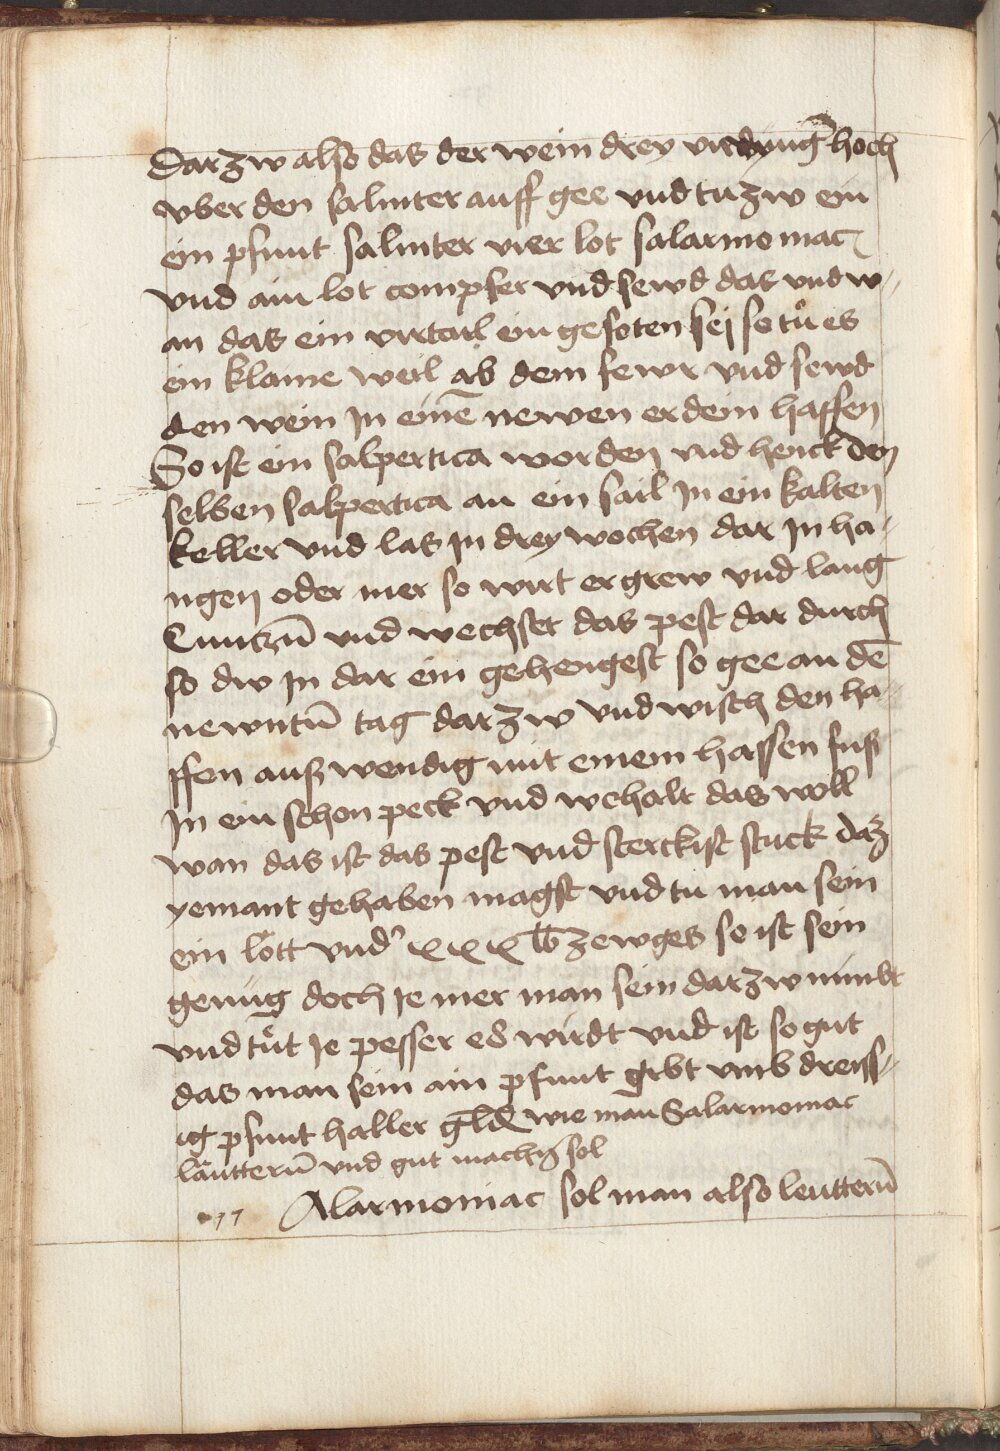 Darzw also das der wein drey vierdyng̅ hoch
vber den salniter auff gee vnd tu zw ein
ein pfunt salniter vier lot salarmoniac
vnd ain lot compfer vnd sewd das vnd w-
an das ein virtail ein gesoten sej so tů es
ein klaine weil ab dem fewr vnd sewd
den wein Jn eine̅ newen erdein haffen
So ist ein salpertica worden vnd henck den
selben salpertica an ein sail Jn ein kalten
keller vnd las Jn drey wochen dar Jn ha-
ngen oder mer so wirt er grew vnd lang
vnd wechset das pest dar durch
so dw Jn dar ein gehengest so gee an de̅
newntu̅ tag darzw vnd wisch den ha-
ffen auß wendig mit einem hassen fuß
Jn ein schon peck vnd wehalt das woll
wan das ist das pest vnd sterckist stuck daz
yemant gehaben magst vnd tu man sein
ein lött vnd xxx lb zewges so ist sein
genůg doch Je mer man sein darzw nimbt
vnd tůt Je pesser es wirdt vnd ist so gut
das man sein ain pfunt gebt vmb dreiss-
ig pfunt haller wie man Salarmoniac
läutteru̅ vnd gut mach̅ sol
77 Alarmoniac sol man also leutteru̅